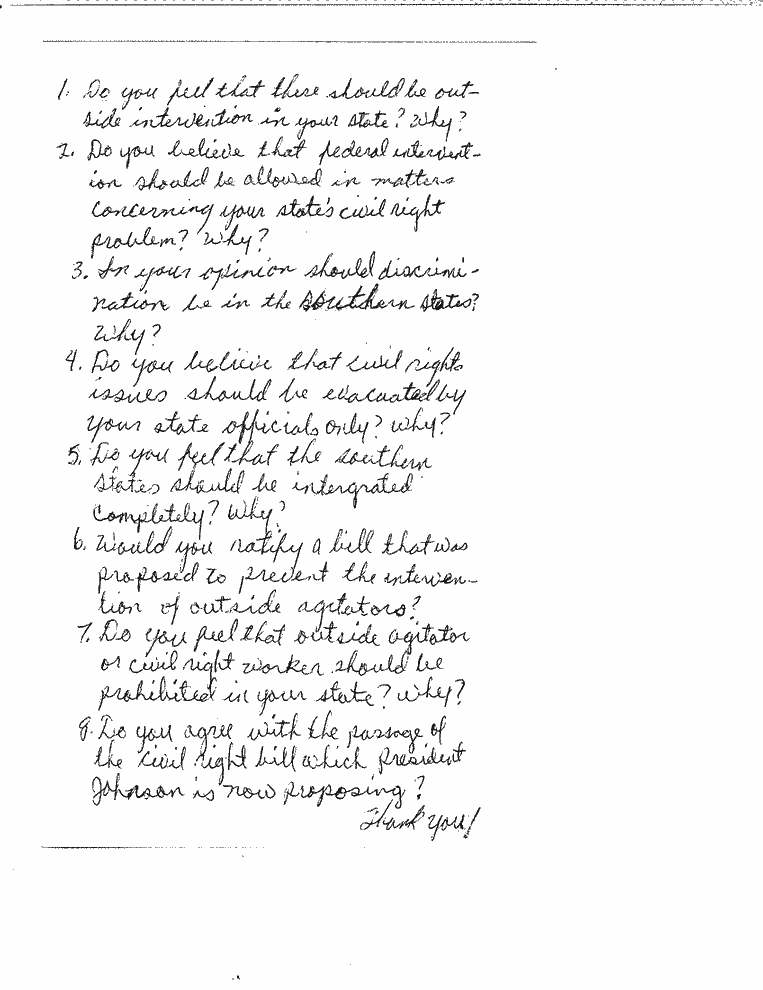 1. Do you feel that there should be out-
side intervention in your state? Why?
2. Do you believe that federal intervent-
ion should be allowed in matters
concerning your state's civil right
problem? Why?
3. In your opinion should discrimi-
nation be in the southern states?
Why?
4. Do you believe that civil rights
issues should be evacuated by
your state officials only? Why?
5. Do you feel that the southern
states should be intergrated
completely? Why?
6. Would you ratify a bill that was
proposed to prevent the interven-
tion of outside agitators?
7. Do you feel that outside agitator
or civil right worker should be
prohibited in your state? Why?
8. Do you agree with the passage of
the civil right bill which president
Johnson is now proposing?
Thank you!